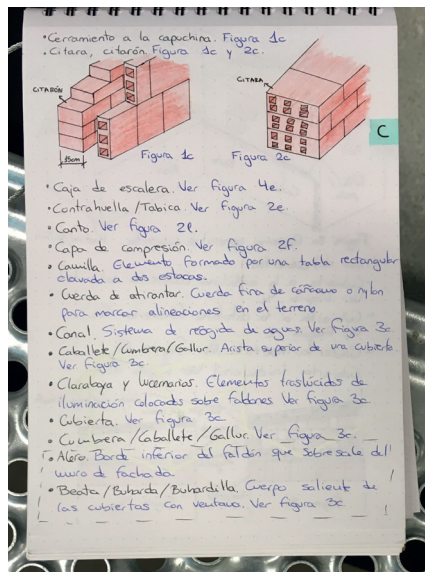 • Cerramiento a la capuchina. Figura 1c
• Citara, citarón. Figura 1c y 2c.
CITARÓN
CITARA
C
15cm
Figura 1c
Figura 2c
• Caja de escalera. Ver figura 4e.
• Contrahuella/Tabica. Ver figura 2e.
• Canto. Ver figura 2l.
• Capa de compresión. Ver figura 2f.
• Camilla. Elemento formado por una tabla rectangular
clavada a dos estacas.
• Cuerda de atirantar. Cuerda fina de cáñamo o nylon
para marcar alineaciones en el terreno.
• Canal. Sistema de recogida de aguas. Ver figura 3c.
• Caballete/Cumbrera/Gallur. Arista superior de una cubierta.
Ver figura 3c.
• Claraboya y lucernarios. Elementos traslúcidos de
iluminación colocados sobre faldones. Ver figura 3c
• Cubierta. Ver figura 3c
• Cumbrera/Caballete/Gallur. Ver figura 3c.
• Alero. Borde inferior del faldón que sobresale del
muro de fachada.
• Beata/Buharda/Buhardilla. Cuerpo saliente de
las cubiertas con ventana. Ver figura 3c